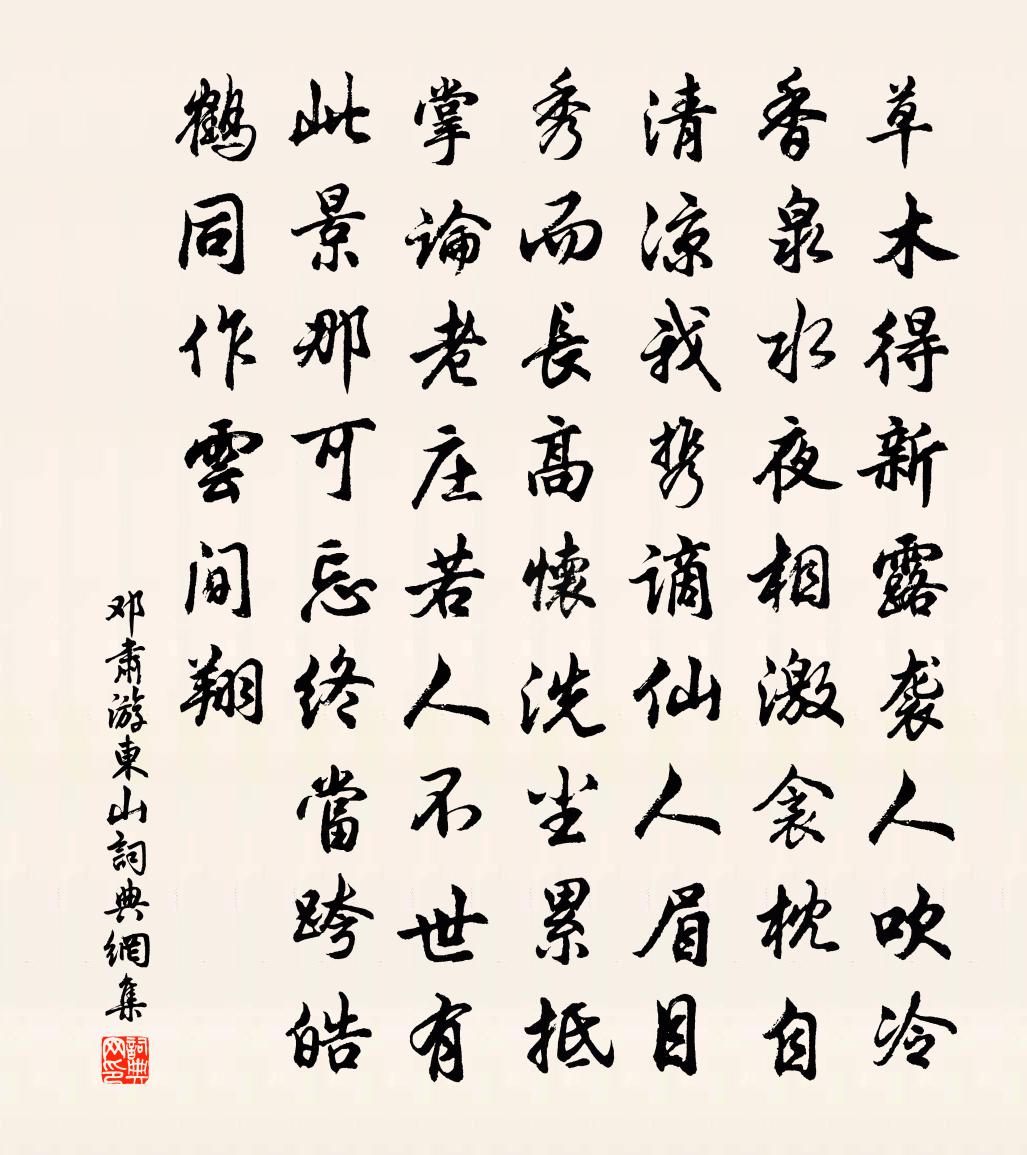 草木得新露袭人吹冷
香泉水夜相激衾枕自
清凉我携谪仙人眉目
秀而長高懷洗尘累抵
掌論老庄若人不世有
此景那可忘终當跨皓
鶴同作雲间翔
邓肃游東山詞典網集
詞典网印